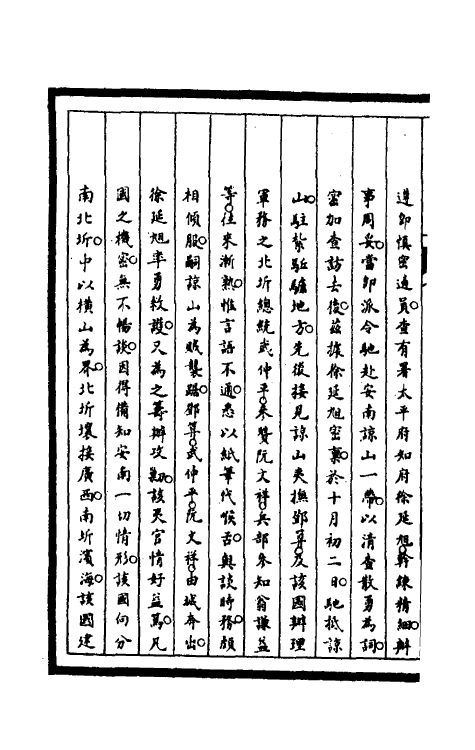 遵即慎密遴員查有署太平府知府徐延旭幹練精細辦
事周妥當即派令馳赴安南諒山一帶以清查散勇為詞
密加查訪去後茲據徐延旭密稟於十月初二日馳抵諒
山駐紮驅驢地方先後接見諒山夷撫鄧算及該國辦理
軍務之北圻總統武仲平叅贊阮文祥兵部參知翁謙益
等往來漸熟惟言語不通悉以紙筆代喉舌與談時務頗
相傾服嗣諒山為賊襲踞鄧算武仲平阮文祥由城奔出
徐延旭率勇救護又為之籌辦攻勦該夷官情好益篤凡
國之機密無不暢談因得備知安南一切情形該國向分
南北圻中以橫山為界北圻壤接廣西南圻濱海該國建